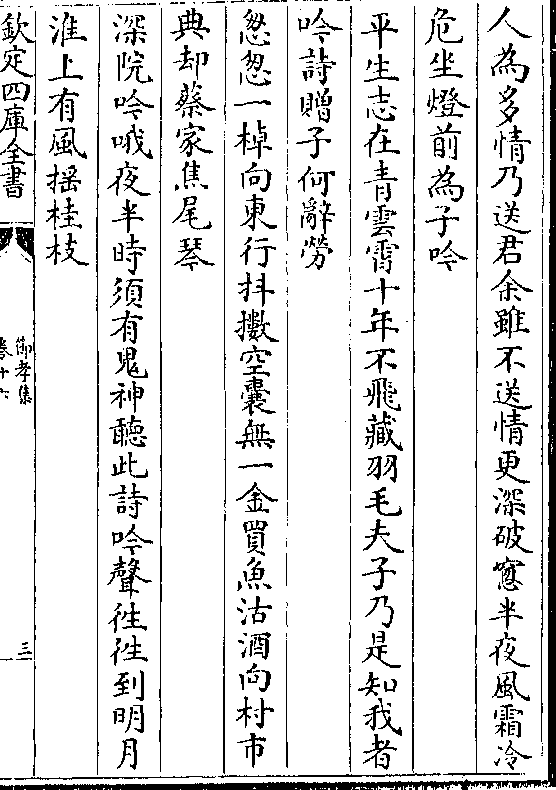 人為多情乃送君余雖不送情更深破窻半夜風霜冷
危坐燈前為子吟
平生志在青雲霄十年不飛藏羽毛夫子乃是知我者
吟詩贈子何辭勞
怱怱一棹向東行抖擻空囊無一金買魚沽酒向村市
典却蔡家焦尾琴
深院吟哦夜半時須有鬼神聽此詩吟聲徃徃到明月
淮上有風揺桂枝
欽定四庫全書
卷十六
三